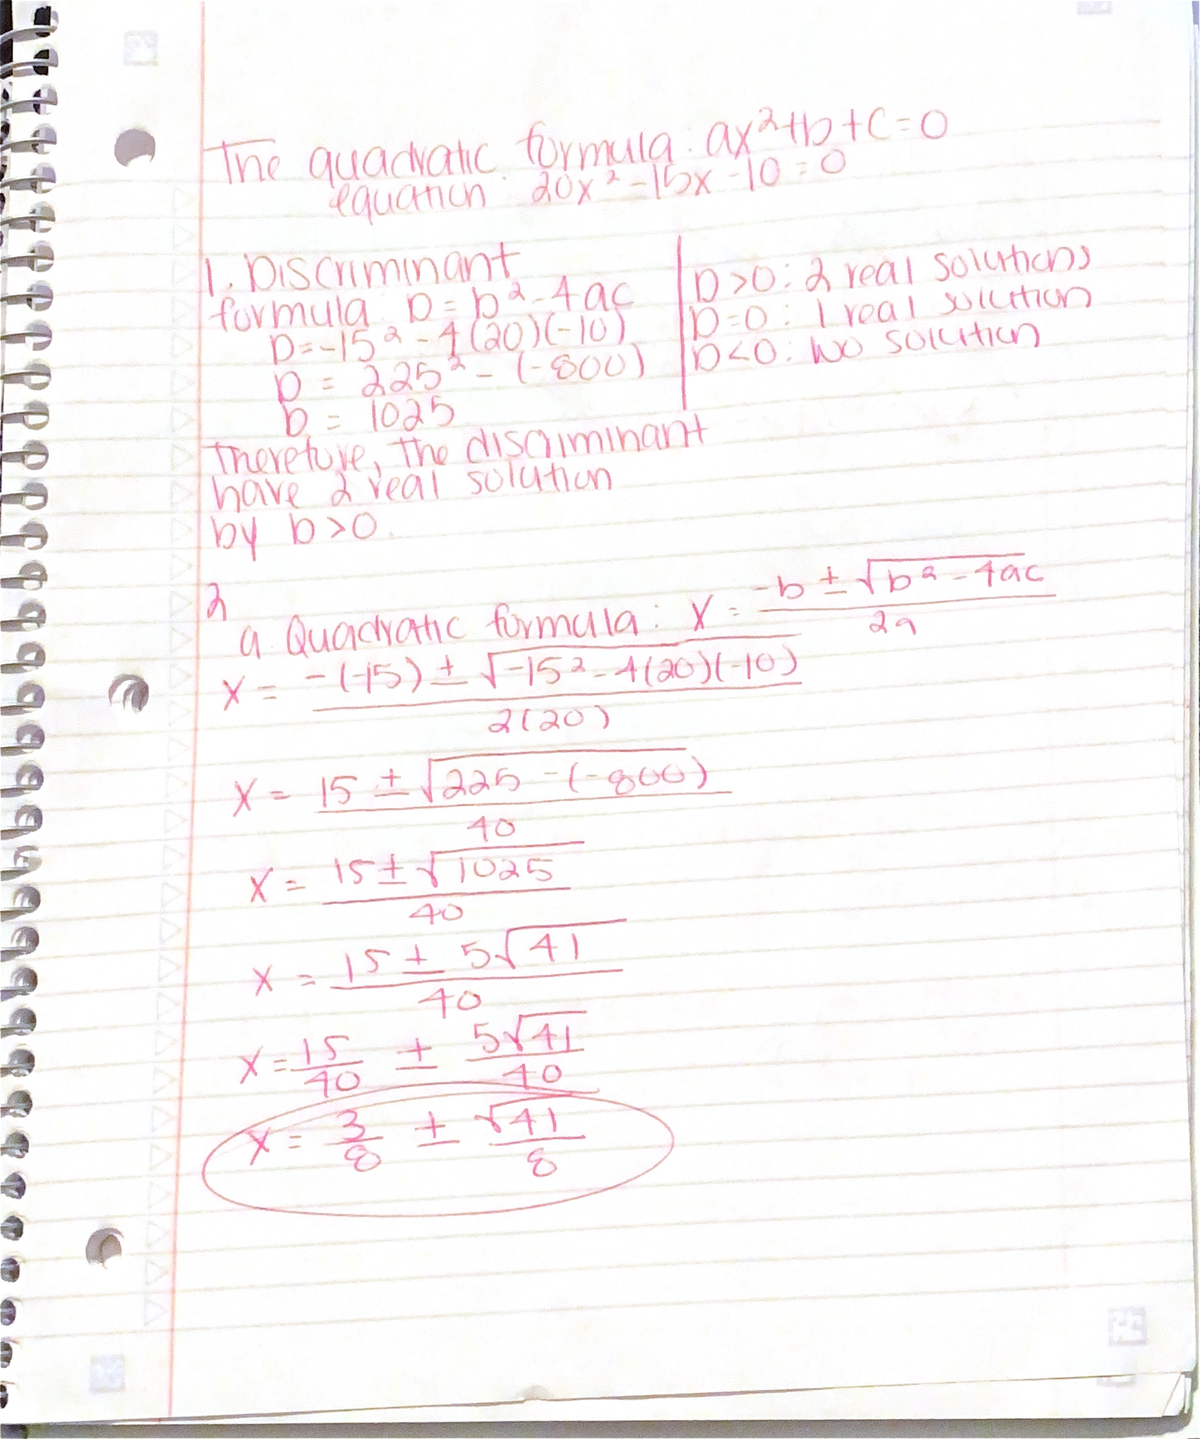 The quadratic formula: ax²+b+c=0
equation: 20x²-15x-10=0
1. Discriminant
formula: D=b²-4ac
D=-15²-4(20)(-10)
D = 225²-(-800)
D = 1025
D>0: 2 real solutions
D=0: 1 real solution
D<0: No solution
Therefore, the discriminant
have 2 real solution
by D>0.
2
a. Quadratic formula: X = -b ± √b²-4ac / 2a
X = -(-15) ± √-15²-4(20)(-10) / 2(20)
X = 15 ± √225-(-800) / 40
X = 15 ± √1025 / 40
X = 15 ± 5√41 / 40
X = 15/40 ± 5√41/40
X = 3/8 ± √41/8